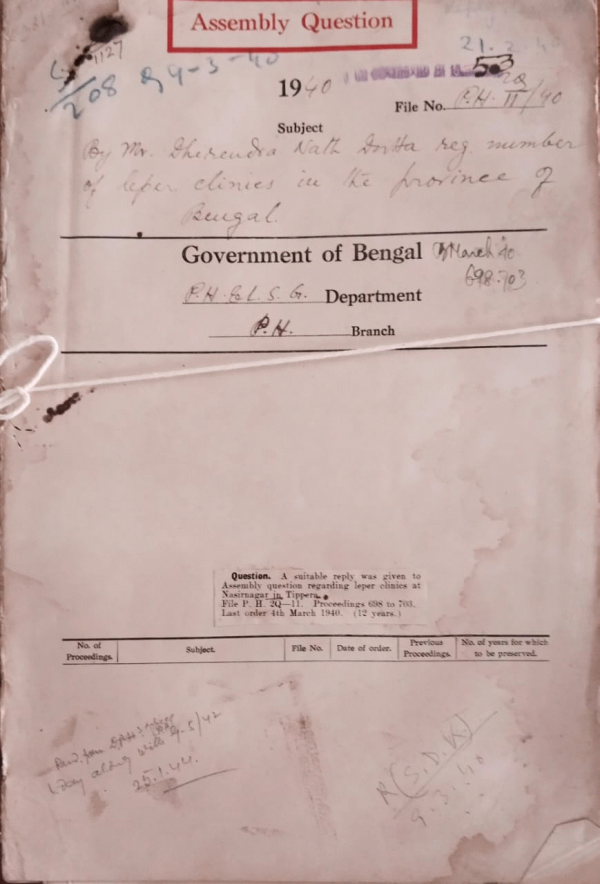 Assembly Question
1127
208 9-3-40
21.2.40
53
1940
File No. P.H. 2Q/II/40
Subject
By Mr. Dhirendra Nath Dutta reg. number
of leper clinics in the province of
Bengal.
Government of Bengal March 40
698-703
P.H. & L.S.G. Department
P.H. Branch
Question. A suitable reply was given to
Assembly question regarding leper clinics at
Nasirnagar in Tippera.
File P. H. 2Q—11. Proceedings 698 to 703.
Last order 4th March 1940. (12 years.)
No. of Proceedings. Subject. File No. Date of order. Previous Proceedings. No. of years for which to be preserved.
along with 9-5/42
25.1.44.
R (S.D.K)
9.3.40